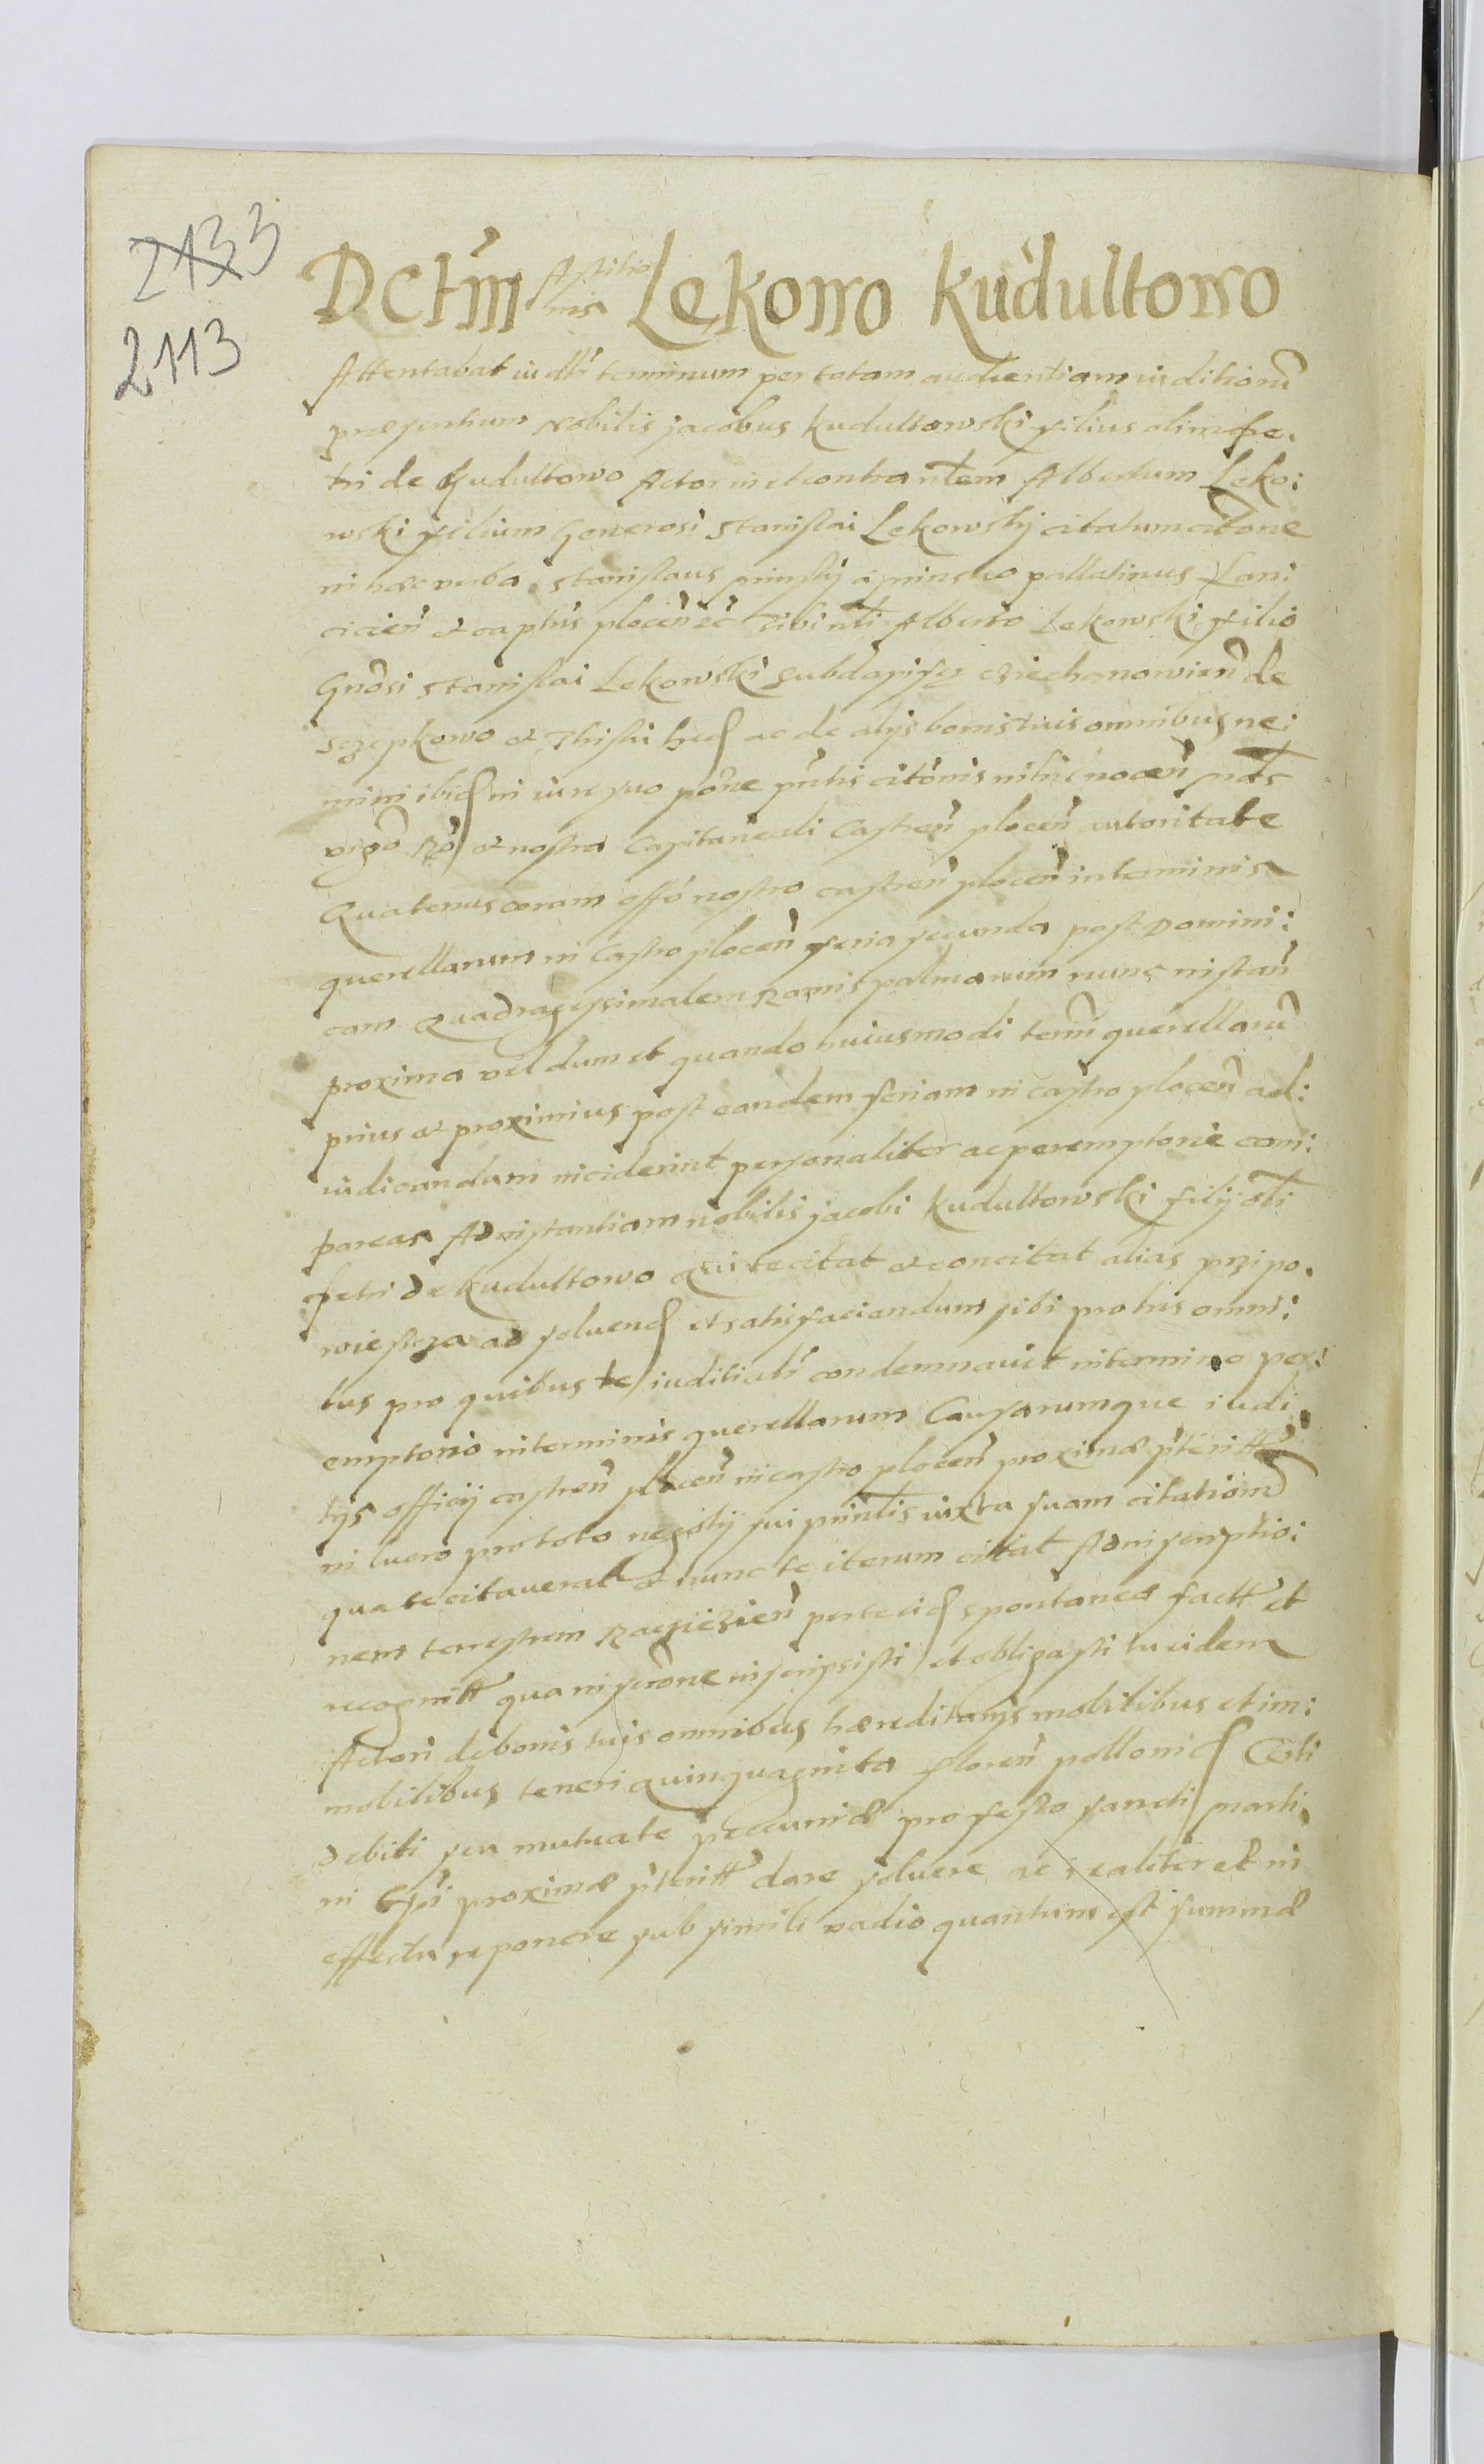 2133
2113
Dctm̃ Astitio
nis Lekowo Kudultowo
Attentabat iudłr terminum per totam audientiam iuditiorũ
præsentium Nobilis Jacobus Kudultowski filius olim Pe.
tri de Kudultowo Actor in et contra nłem Albertum Leko:
wski filium Generosi Stanislai Lekowskij citatum cítõne
in hæc verba. Stanislaus Minskij a Minsko pallatinus Lani
cicien̄ et capłus plocen̄ ec̃ Tibi nłi Alberto Lekowski filio
Gnõsi Stanislai Lekowski Subdapiferi Cziechanowien̄ de
Szczepkowo et hæred ac de alijs bonis tuis omnibus ne:
mini ibid in iure suo põne pñtis citõnis nihil nocen̄ mãs
Rõ et nostra Capitaneali Castren̄ plocen̄ autoritate
Quatenus coram offõ nostro castren̄ plocen̄ in terminis
querellarum in Castro plocen̄ feria secunda post Domini:
cam Quadragesimalem Ramis palmarum nunc instan̄
proxima vel dum et quando huiusmodi termĩ querellarũ
prius et proximius post eandem feriam in castro plocen̄ ad:
iudicandum inciderint personaliter ac peremptorie com:
pareas Ad instantiam nobilis Jacobi Kudultowski filij olĩ
Petri de Kudultowo Qui te citat et concitat alias przypo.
wiescza ad soluend et satisfaciendum sibi pro his omni:
bus pro quibus te iuditialr̃ condemnavit in termino per:
emptorio in terminis querellarum Causarumque iudi.
tijs officij castren̄ plocen̄ in castro plocen̄ proxime pterittis
in luero pro toto negotij sui prinłis iuxta suam citationẽ
qua te citaverat et nunc te iterum citat Ad inscriptio:
nem terrestrem Raczięzien̄ per te eid spontanee factt̃ et
recognitt̃ qua inscrõne inscripsisti et obligasti tu eidem
Actori de bonis tuis omnibus hæreditarijs mobilibus et im:
mobilibus teneri Quinquaginta floren̄ pollonic Certi
debiti seu mutuate peccuniæ pro festo sancti Marti.
ni Epĩ proxime pteritt̃ dare soluere ac realiter et in
effectu reponere sub simili vadio quantum est summæ